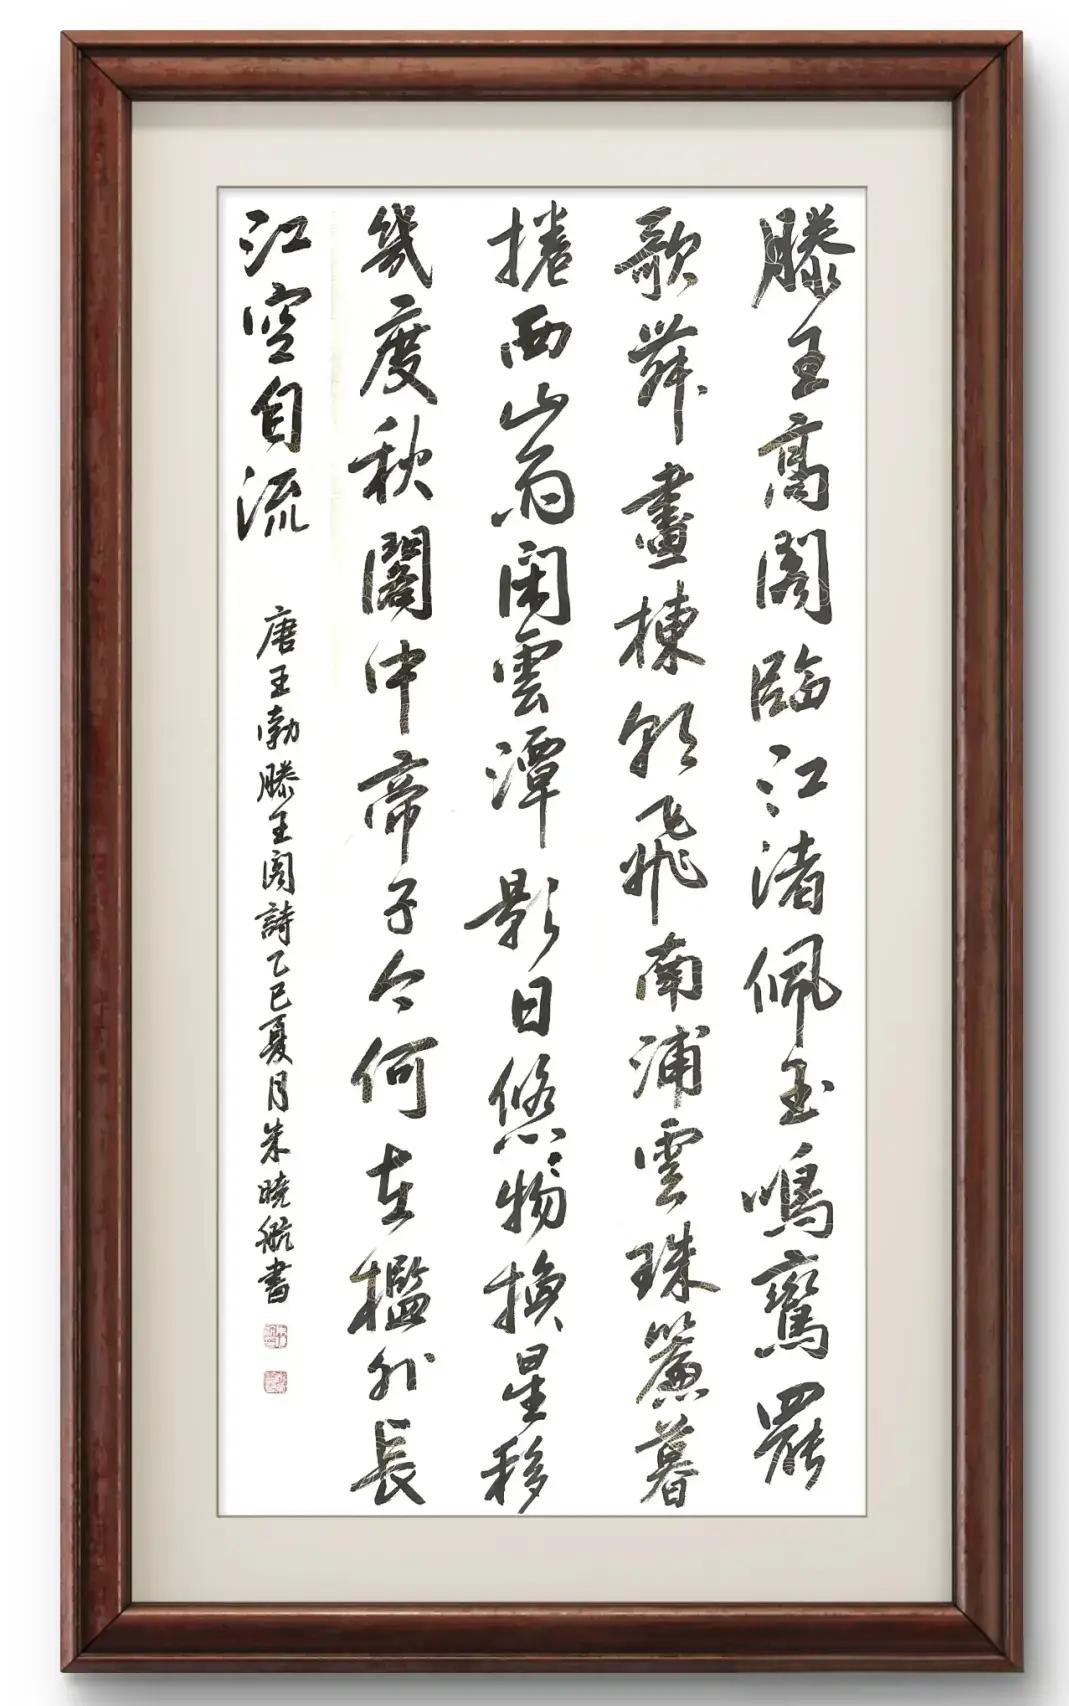 滕王高閣臨江渚佩玉鳴鸞罷
歌舞畫棟朝飛南浦雲珠簾暮
捲西山雨閑雲潭影日悠悠物換星移
幾度秋閣中帝子今何在檻外長
江空自流
唐王勃滕王閣詩乙巳夏月朱曉航書